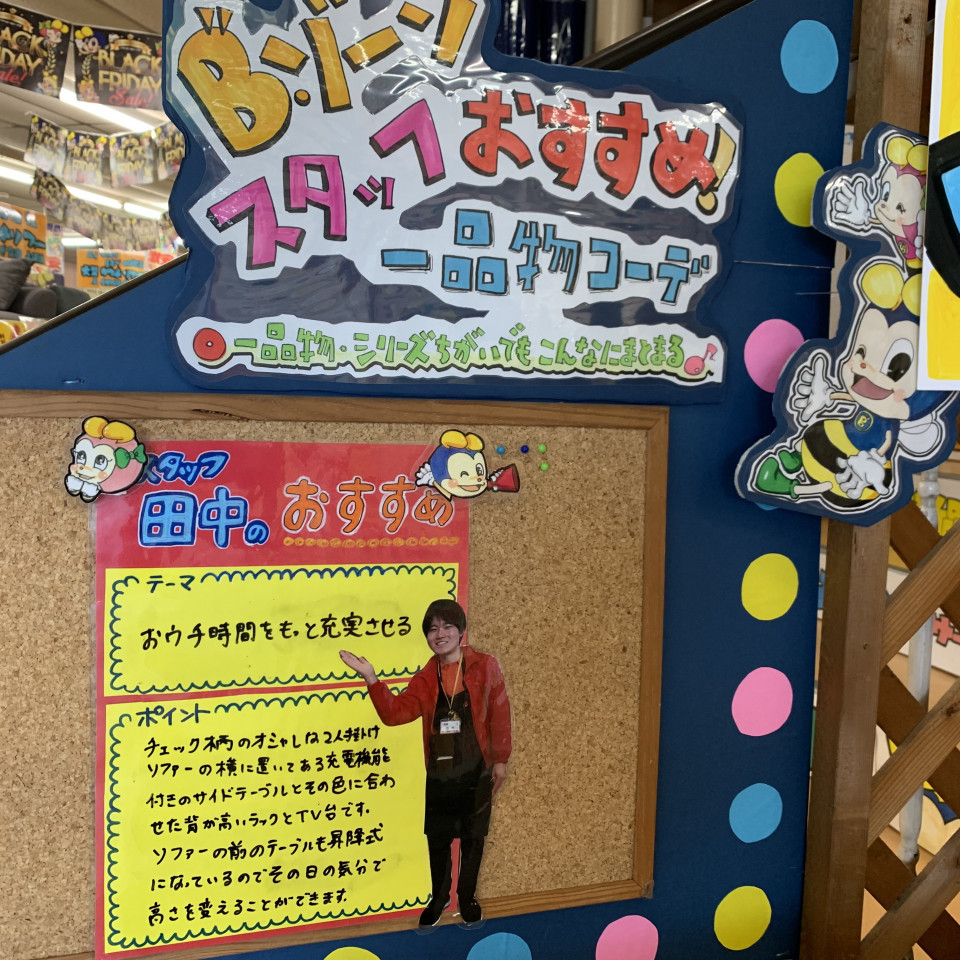 BLACK FRIDAY Sale!
BLACK FRIDAY Sale!
B・ゾーン
スタッフおすすめ!
一品物コーデ
一品物・シリーズちがいでもこんなにまとまる♪
スタッフ
田中のおすすめ
テーマ
おウチ時間をもっと充実させる
ポイント
チェック柄のオシャレな2人掛け
ソファーの横に置いてある充電機能
付きのサイドテーブルとその色に合わ
せた背が高いラックとTV台です。
ソファーの前のテーブルも昇降式
になっているのでその日の気分で
高さを変えることができます。